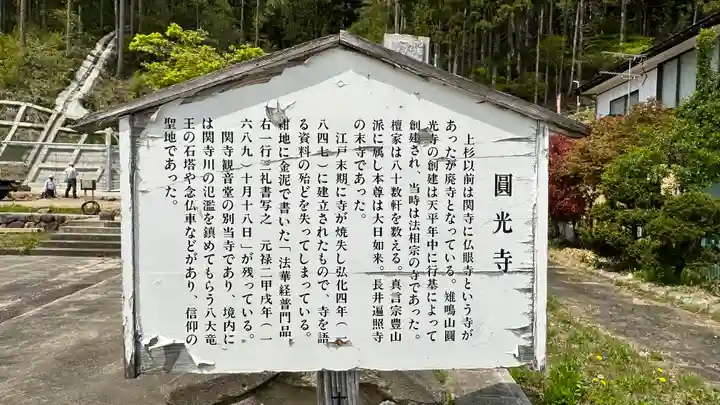 圓光寺
上杉以前は関寺に仏眼寺という寺が
あったが廃寺となっている。雉鳴山圓
光寺の創建は天平年中に行基によって
創建され、当時は法相宗の寺であった。
檀家は八十数軒を数える。真言宗豊山
派に属し本尊は大日如来。長井遍照寺
の末寺であった。
江戸末期に寺が焼失し弘化四年（一
八四七）に建立されたもので、寺を語
る資料の殆どを失ってしまっている。
紺地に金泥で書いた「法華経普門品、
右一行三礼書写之 元禄二甲戌年（一
六八九）十月十八日」が残っている。
関寺観音堂の別当寺であり、境内に
は関寺川の氾濫を鎮めてもらう八大竜
王の石塔や念仏車などがあり、信仰の
聖地であった。